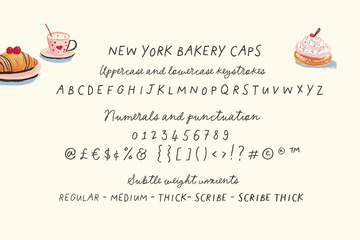 NEW YORK BAKERY CAPS
Uppercase and lowercase keystrokes
ABCDEFGHIJKLMNOPQRSTUVWXYZ
Numerals and punctuation
0123456789
@£€$¢%& {}[]()<>!?#©®™
Subtle weight variants
REGULAR - MEDIUM - THICK - SCRIBE - SCRIBE THICK